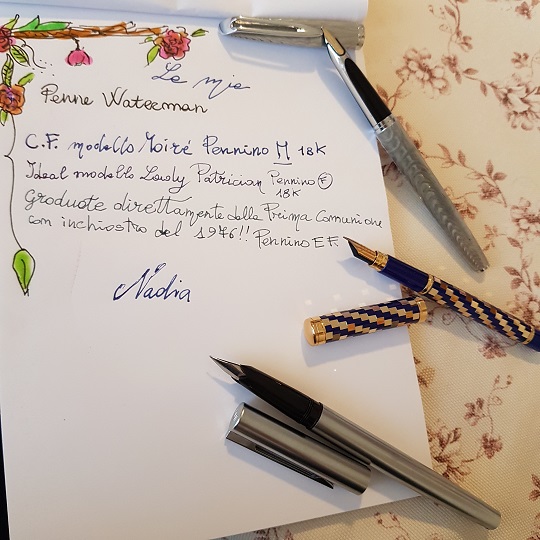 Le mie
Penne Waterman
C.F. modello Moiré Pennino M 18K
Ideal modello Lady Patrician Pennino F
18K
Graduate direttamente dalla Prima Comunione
con inchiostro del 1976!! Pennino EF.
Nadia